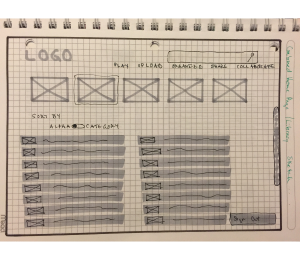 LOGO
PLAY UPLOAD ENHANCED SHARE COLLABORATE
SORT BY
ALPHA CATEGORY
Sign Out
Home Page / Library Sketch